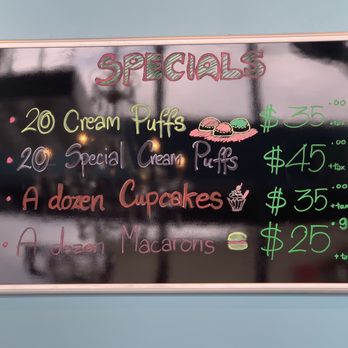 SPECIALS
• 20 Cream Puffs $35.00 +tax
• 20 Special Cream Puffs $45.00 +tax
• A dozen Cupcakes $35.00 +tax
• A dozen Macarons $25